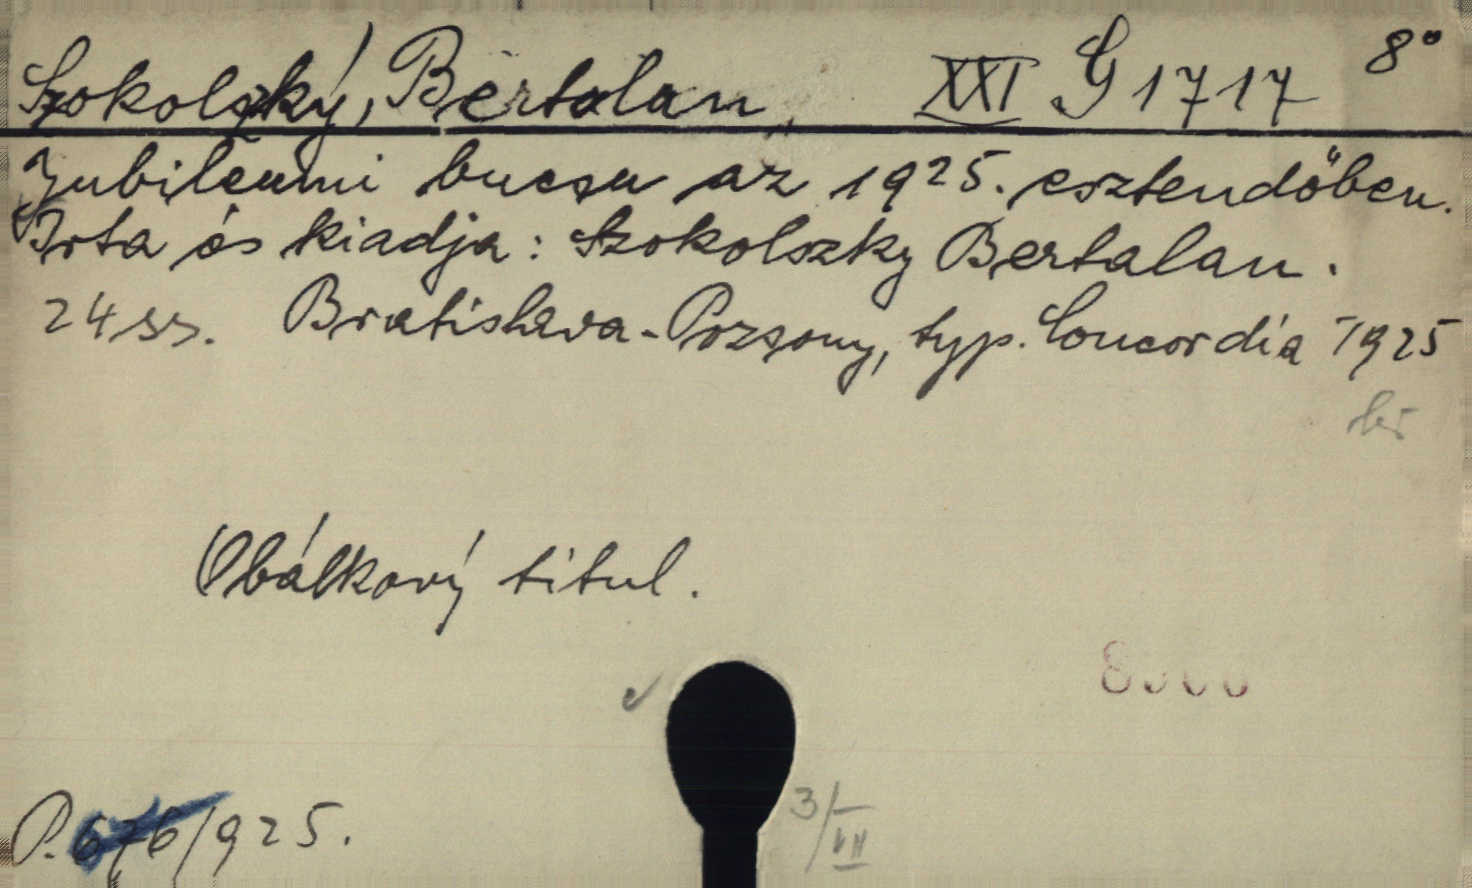 Szokolszký, Bertalan, XXI G 1717 8°
Jubileumi bucsu az 1925. esztendőben.
Irta és kiadja: Szokolszky Bertalan.
24 ss. Bratislava-Pozsony, typ. Concordia 1925
Obálkový titul.
3/VII
P. 676/925.